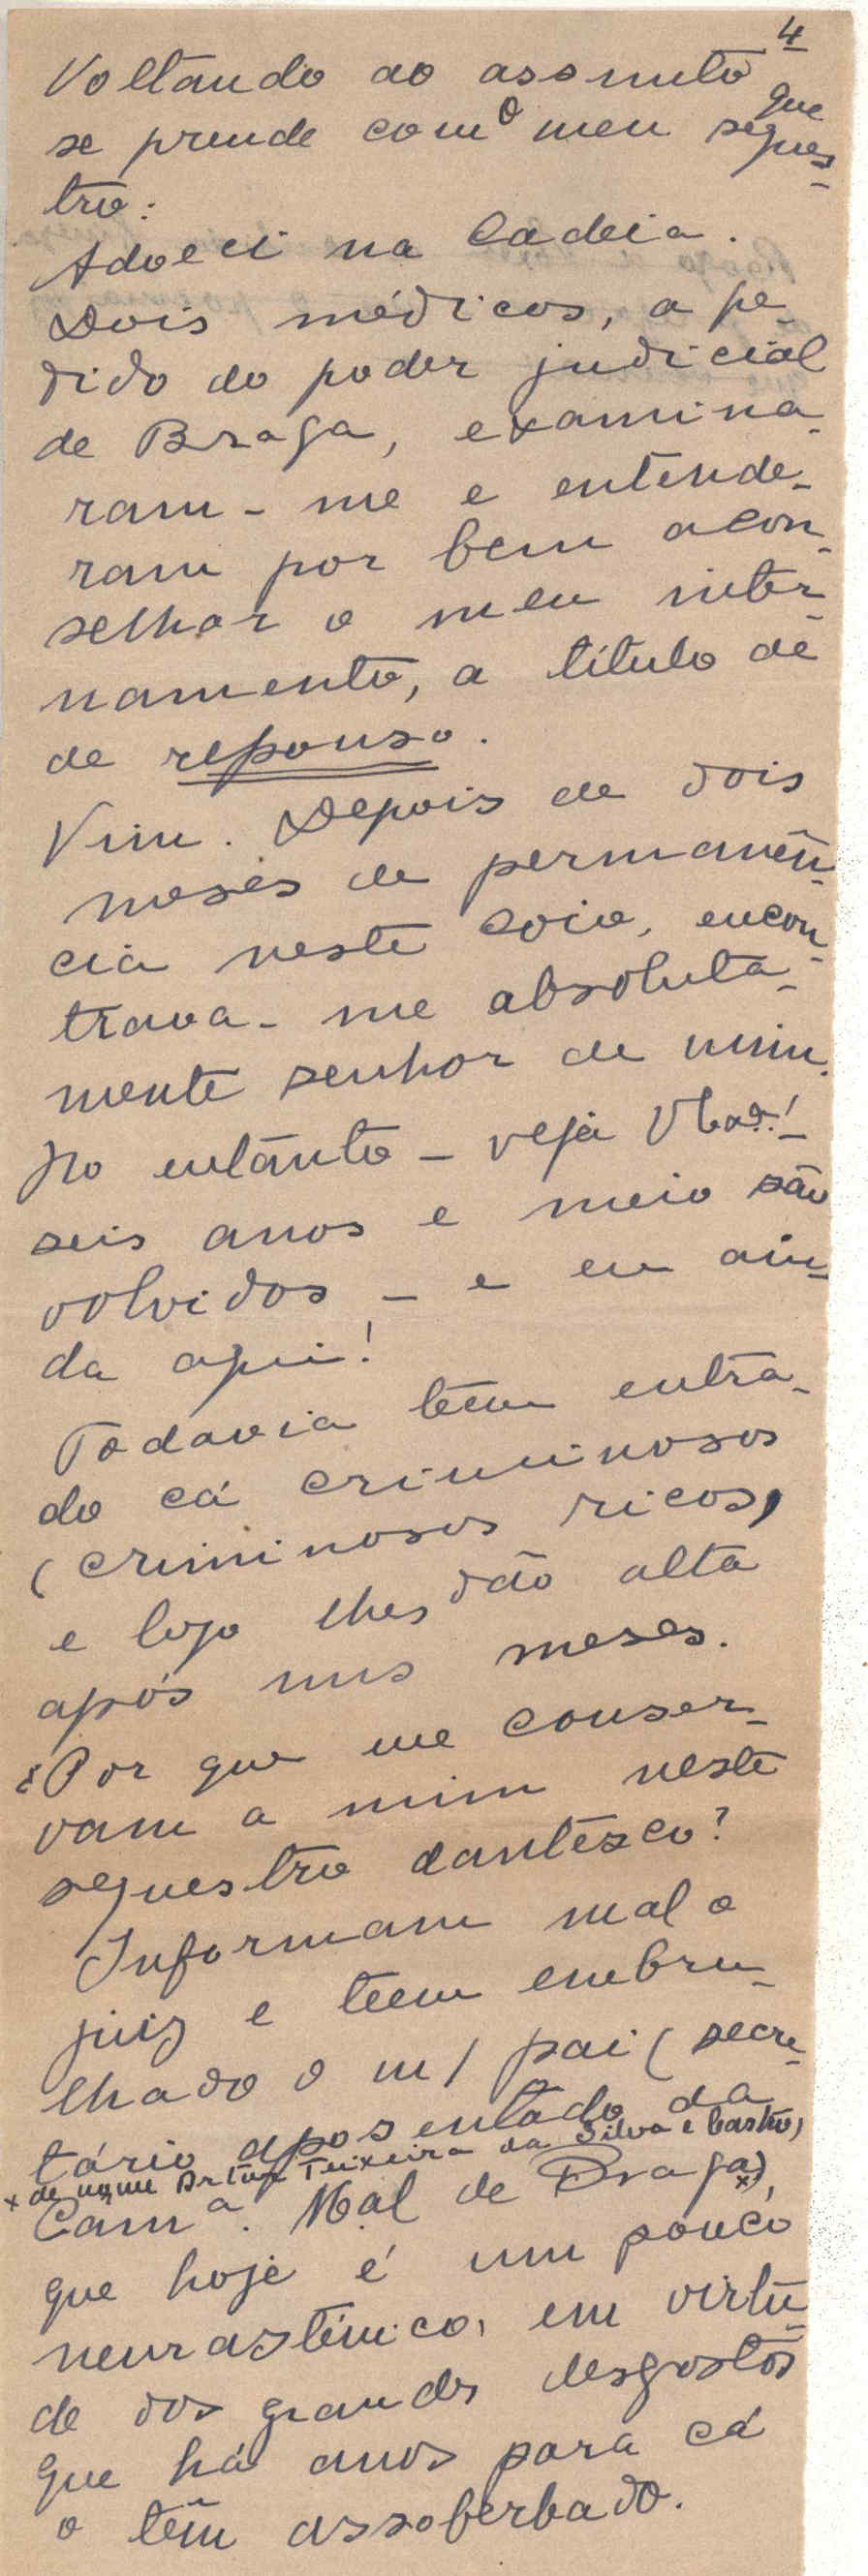 4
Voltando ao assunto que
se prende com o meu seques-
tro:
Adoeci na Cadeia.
Dois médicos, a pe-
dido do poder judicial
de Braga, examina-
ram-me e entende-
ram por bem acon-
selhar o meu inter-
namento, a título de
de repouso.
Vim. Depois de dois
meses de permanên-
cia neste covio, encon-
trava-me absoluta-
mente senhor de mim.
No entanto – veja V
seis anos e meio são
volvidos – e eu ain-
da aqui!
Todavia teem entra-
do cá criminosos
(criminosos ricos)
e logo lhes dão alta
após uns meses.
¿Por que me conser-
vam a mim neste
sequestro dantesco?
Informam mal o
juiz e teem embru-
lhado o m/ pai (secre-
tário aposentado da
x de nome Artur Teixeira da Silva e Castro)
Câmª. Mal de Braga x),
que hoje é um pouco
neurasténico, em virtu-
de dos grandes desgostos
que há anos para cá
o têm assoberbado.